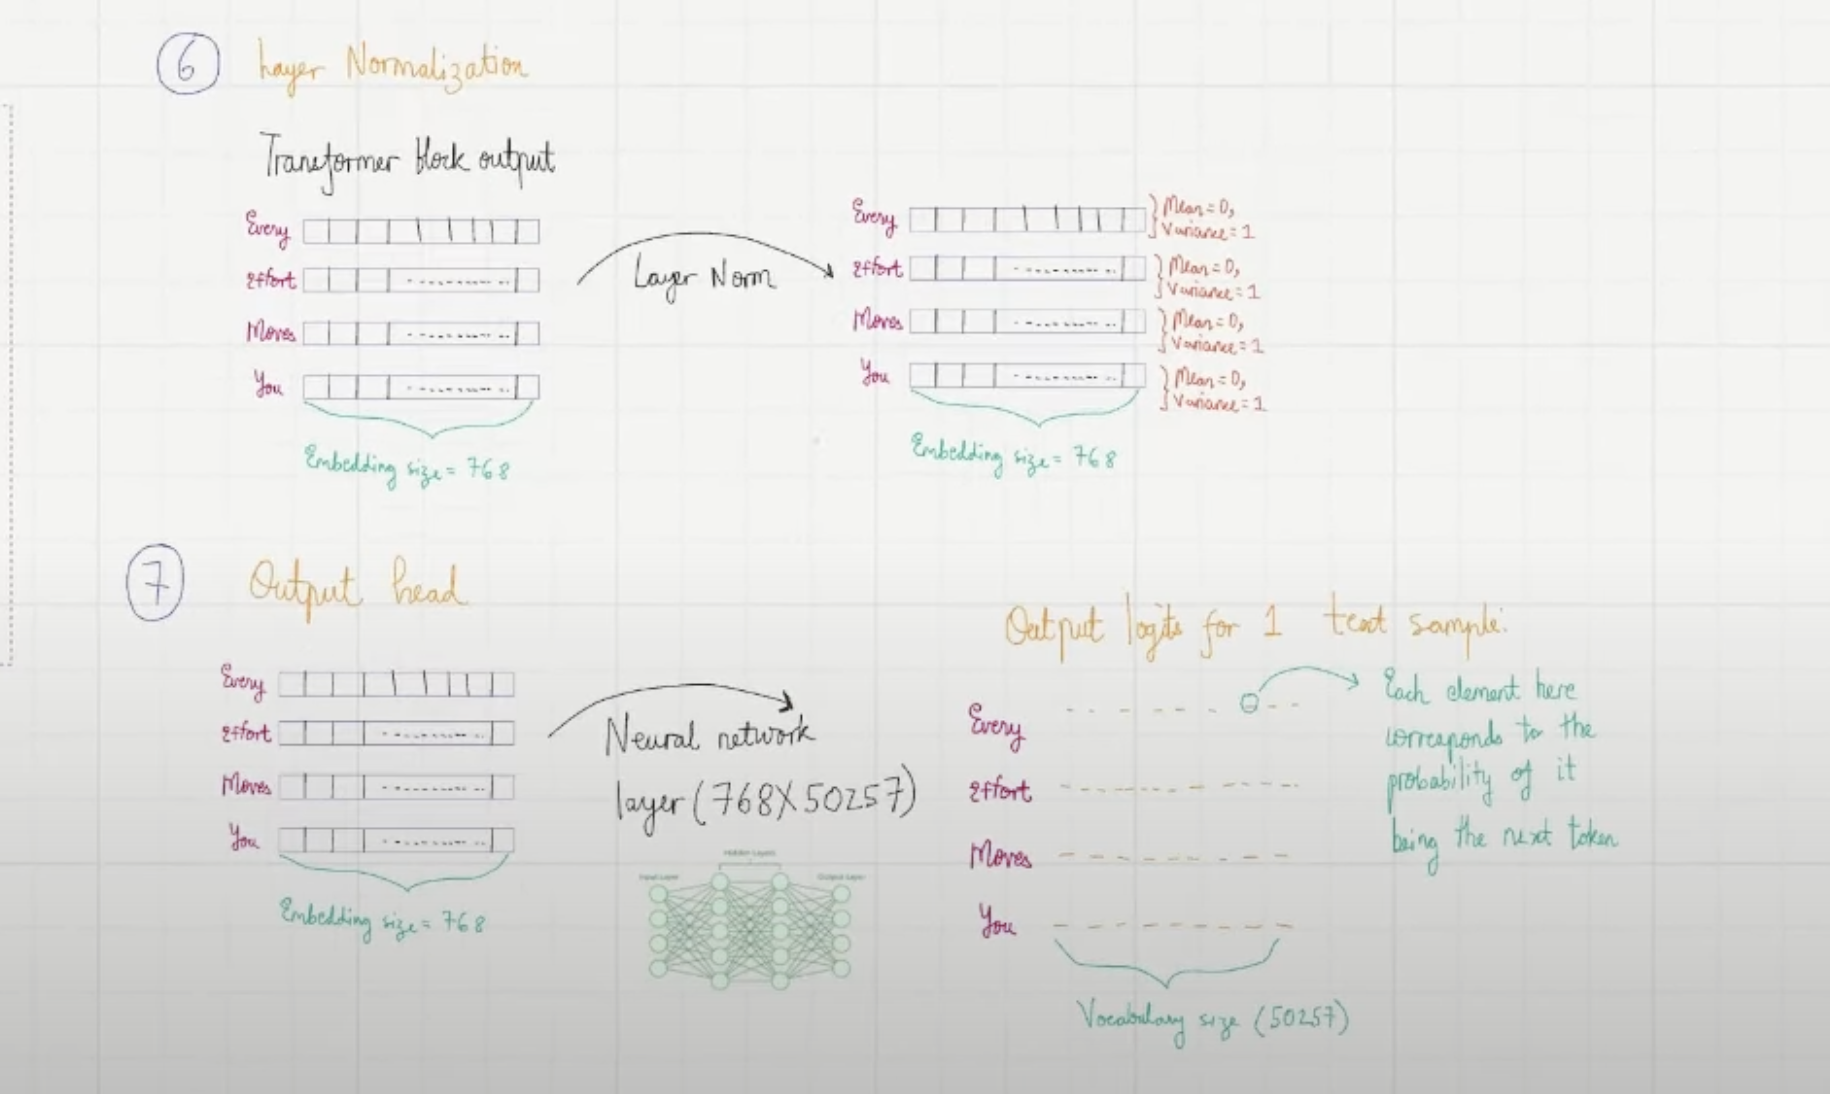 6 Layer Normalization
Transformer block output
Every
Effort
Moves
You
Embedding size = 768
Layer Norm
Every
Mean = 0,
Variance = 1
Effort
Mean = 0,
Variance = 1
Moves
Mean = 0,
Variance = 1
You
Mean = 0,
Variance = 1
Embedding size = 768
7 Output head
Every
Effort
Moves
You
Embedding size = 768
Neural network
layer (768X50257)
Hidden Layers
Input Layer
Output Layer
Output logits for 1 text sample:
Every
Effort
Moves
You
Each element here
corresponds to the
probability of it
being the next token
Vocabulary size (50257)